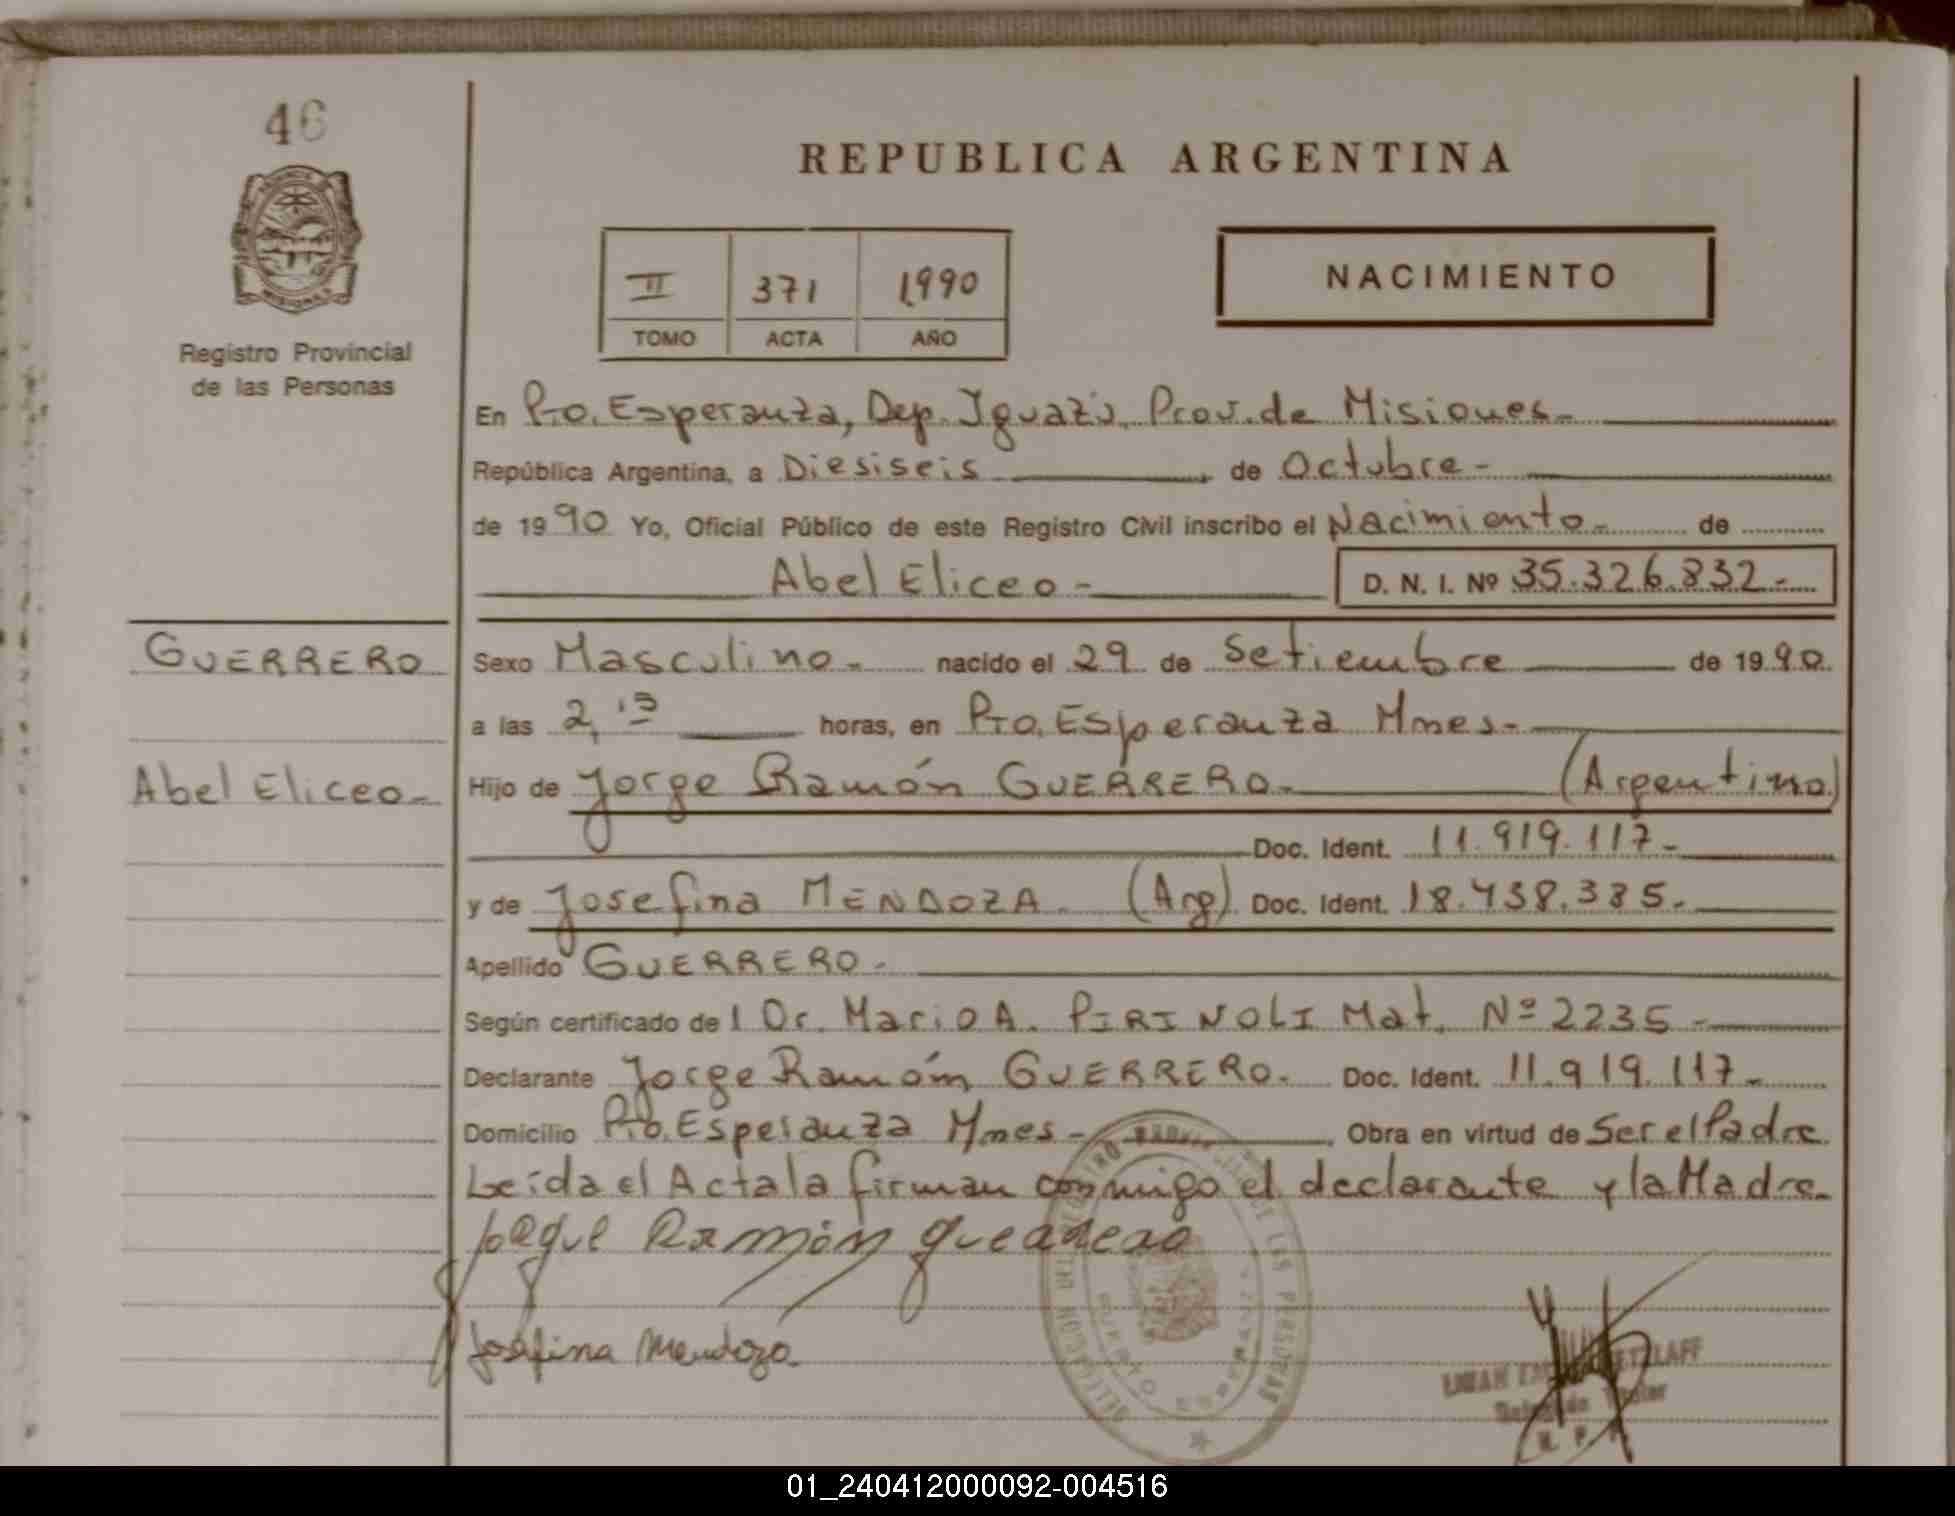 46
REPUBLICA ARGENTINA
II 371 1990
TOMO ACTA AÑO
NACIMIENTO
MISIONES
Registro Provincial
de las Personas
En Pto. Esperanza, Dep. Iguazú, Prov. de Misiones.-
República Argentina, a Diesiseis de Octubre-
de 1990 Yo, Oficial Público de este Registro Civil inscribo el Nacimiento.- de
Abel Eliceo- D. N. I. Nº 35.326.832.-
GUERRERO
Sexo Masculino.- nacido el 29 de Setiembre de 1990.
a las 2,15 horas, en Pto. Esperanza Mnes.-
Abel Eliceo-
Hijo de Jorge Ramón GUERRERO.- (Argentino)
Doc. Ident. 11.919.117-
y de Josefina MENDOZA. (Arg) Doc. Ident. 18.438.385.-
Apellido GUERRERO.-
Según certificado de l Dr. Mario A. PIRINOLI Mat. Nº 2235-
Declarante Jorge Ramón GUERRERO. Doc. Ident. 11.919.117-
Domicilio Pto. Esperanza Mnes- Obra en virtud de Ser el Padre.
Leída el Acta la firman conmigo el declarante y la Madre.
Jorgue Ramón guerrero
Josefina Mendoza
Titular
R. P. P.
01_240412000092-004516